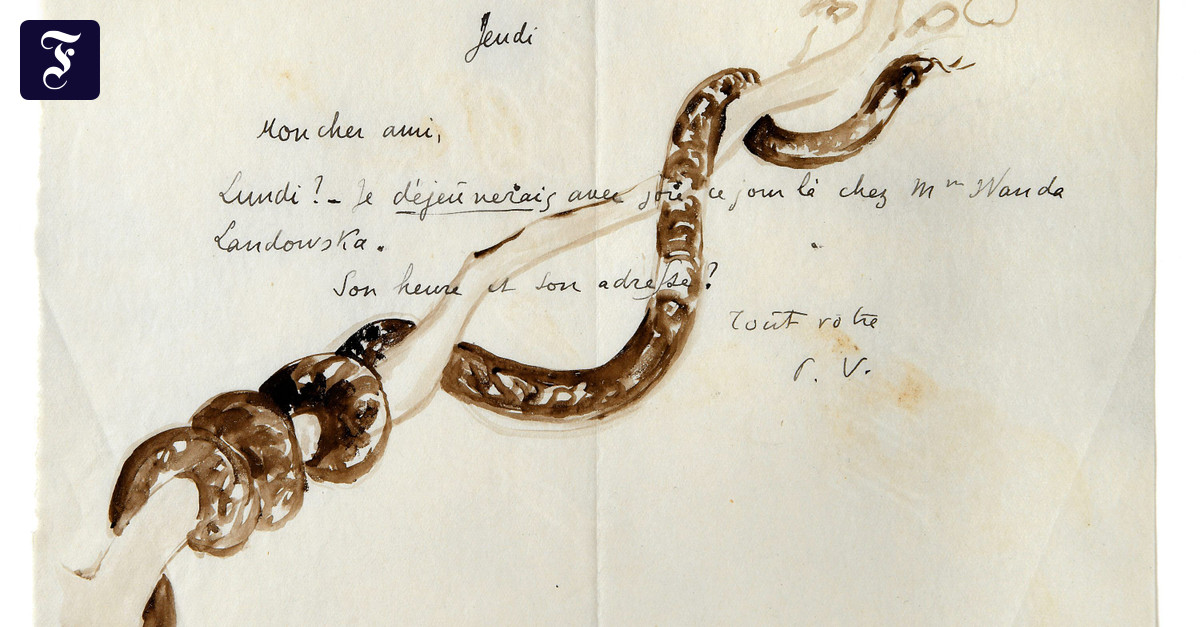 F
Jeudi
Mon cher ami,
Lundi ? - Je déjeûnerais avec joie ce jour là chez Mme Wanda
Landowska.
Son heure et son adresse ?
Tout votre
P. V.